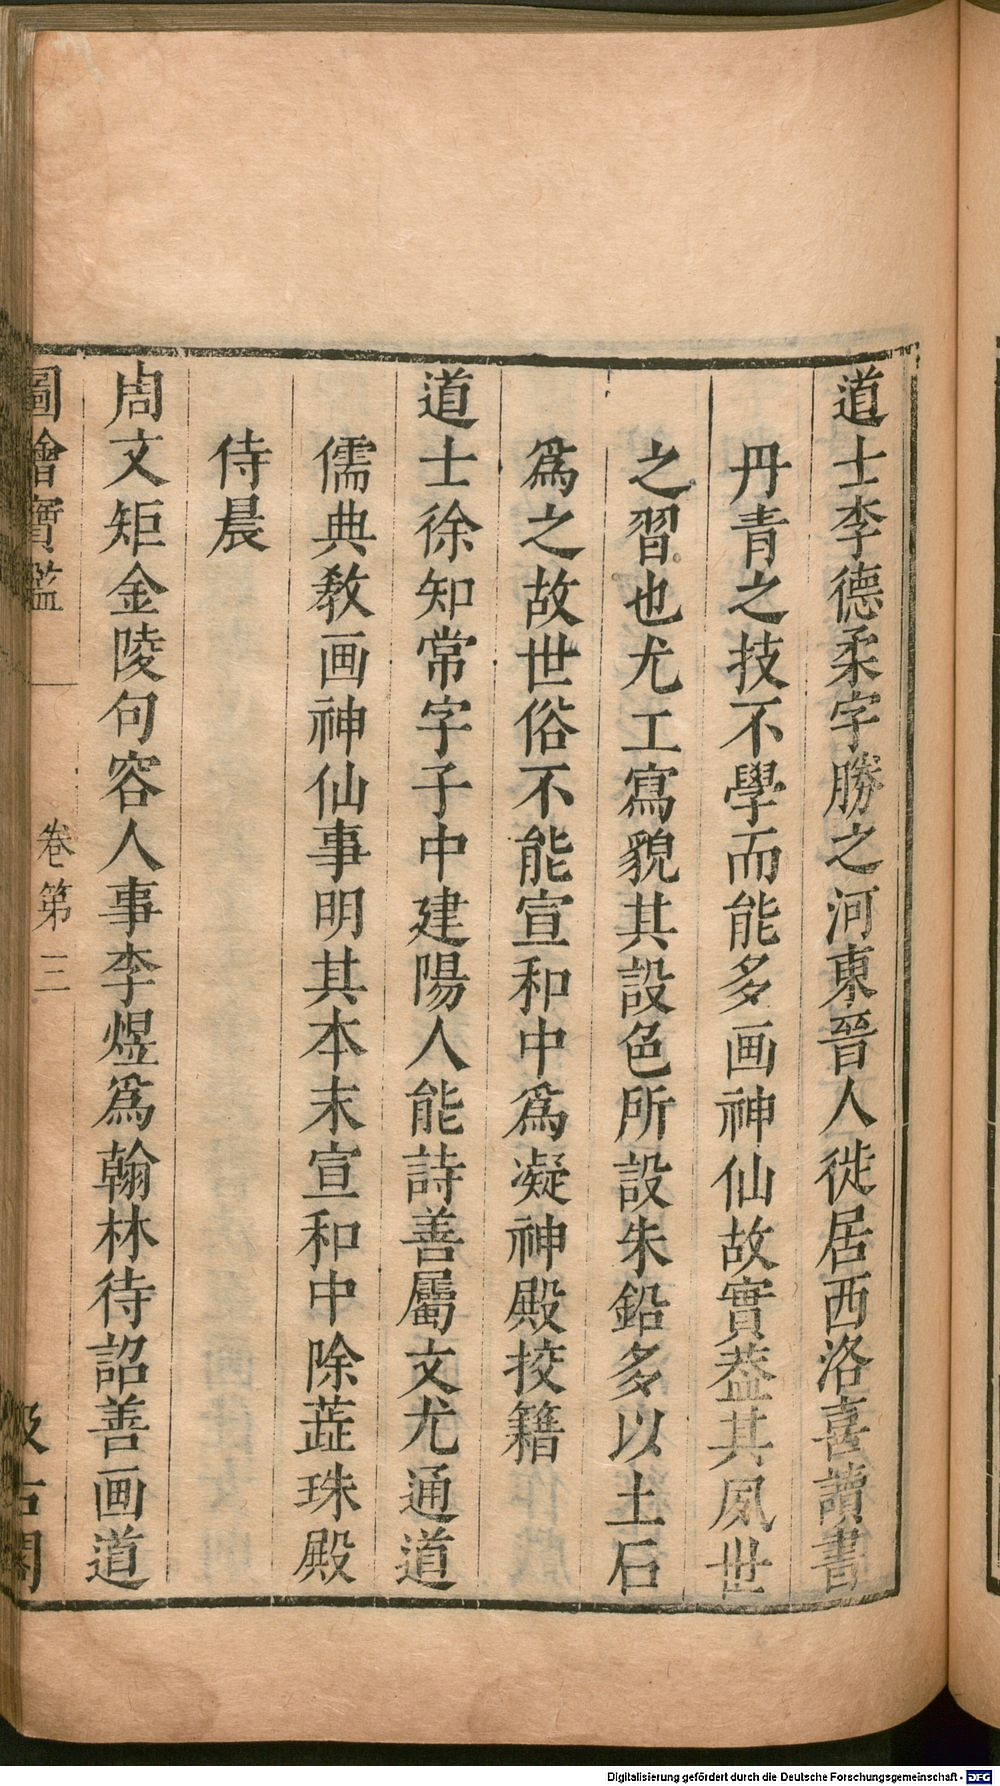 道士李德柔字勝之河東晉人徙居西洛喜讀書
丹青之技不學而能多画神仙故實葢其夙世
之習也尤工寫貌其設色所設朱鉛多以土石
爲之故世俗不能宣和中爲凝神殿挍籍
道士徐知常字子中建陽人能詩善屬文尤通道
儒典教画神仙事明其本末宣和中除蕋珠殿
侍晨
周文矩金陵句容人事李煜爲翰林待詔善画道
圖繪寶鑑 卷第三 汲古閣
Digitalisierung gefördert durch die Deutsche Forschungsgemeinschaft - DFG